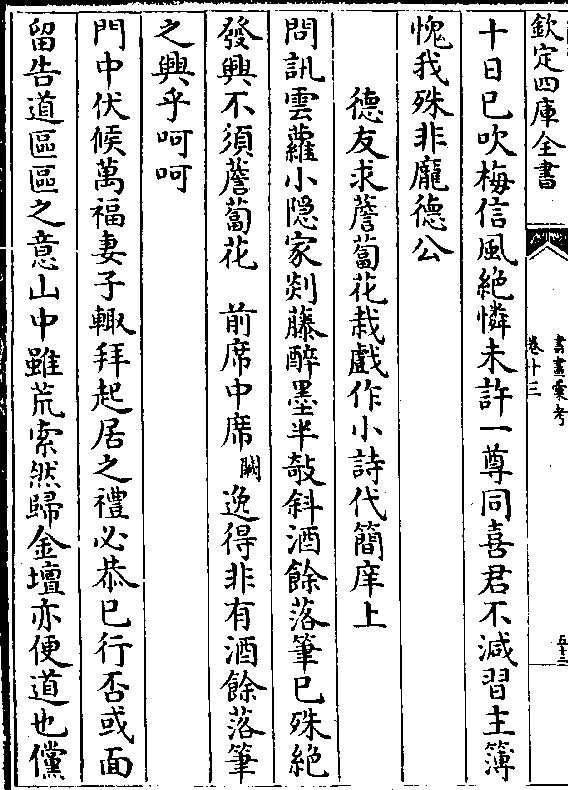 欽定四庫全書
書畫彙考
卷十三
十日已吹梅信風絶憐未許一尊同喜君不減習主簿
愧我殊非龎德公
德友求薝蔔花栽戲作小詩代簡庠上
問訊雲蘿小隠家剡藤醉墨半攲斜酒餘落筆已殊絶
發興不須薝蔔花　前席中席闕逸得非有酒餘落筆
之興乎呵呵
門中伏候萬福妻子輙拜起居之禮必恭已行否或面
留告道區區之意山中雖荒索然歸金壇亦便道也儻